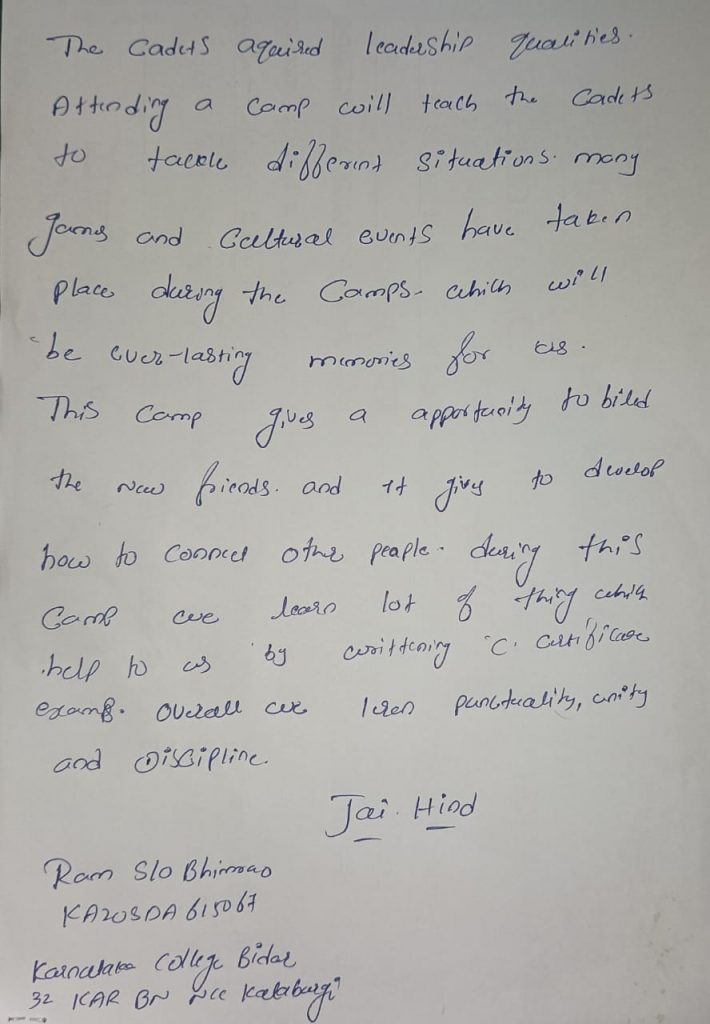 The Cadets aquired leadership qualities.
Attending a Camp will teach the Cadets
to tackle different situations. many
games and Cultural events have taken
place during the Camps. which will
be ever-lasting memories for us.
This Camp gives a apportunity to biled
the new friends. and it givs to develop
how to connect other peaple. during this
Camp we learn lot of thing which
help to us by writtening 'C' certificate
exams. Overall we leren punctuality, unity
and Discipline.
Jai. Hind
Ram S/o Bhimrao
KA20SDA615067
Karnataka College Bidar
32 KAR BN NCC Kalaburgi